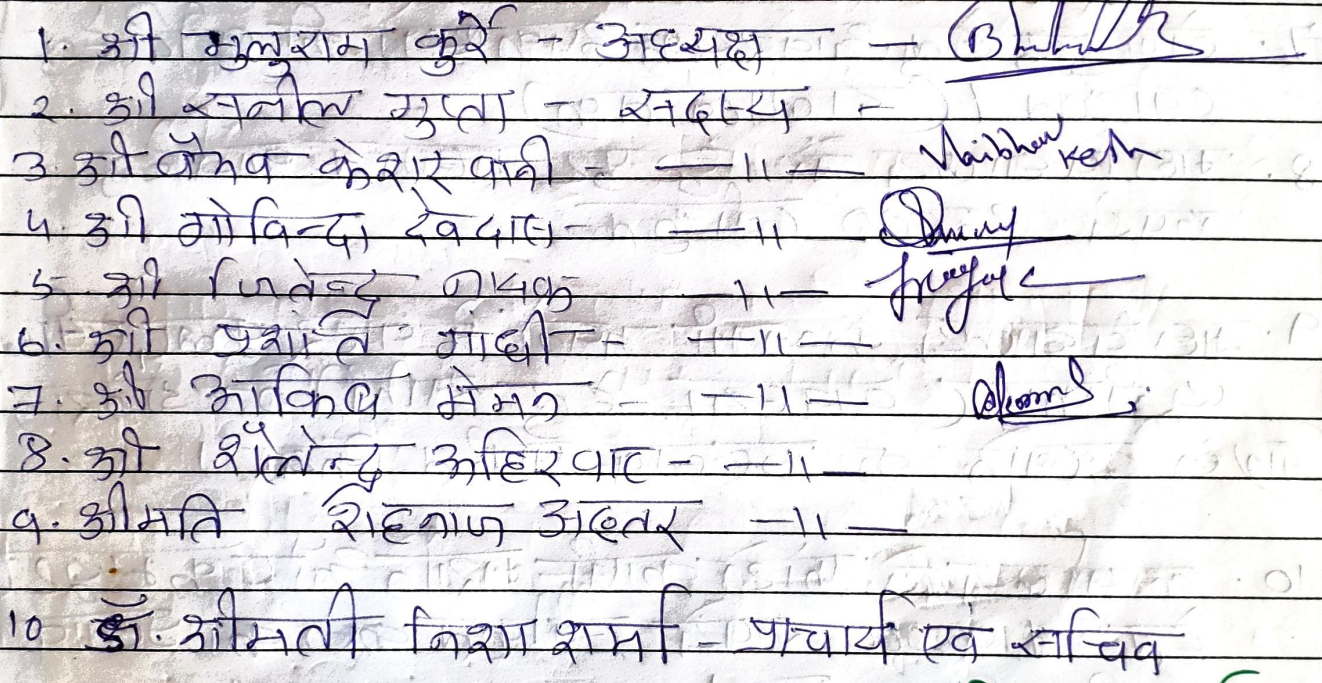 1. श्री मुलुराम कुर्रे - अध्यक्ष -
2. श्री सुनील गुप्ता - सदस्य -
3 श्री वैभव केशरवानी - —11— Vaibhav Kesh
4. श्री गोविन्दा देवदास - —11
5 श्री जितेन्द्र नायक —11—
6. श्री प्रशांति गांधी - —11—
7. श्री आकिब मेमन —11—
8. श्री शैलेन्द्र अहिरवार - —11—
9. श्रीमति शहनाज अख्तर —11—
10 डॉ. श्रीमती निशा शर्मा - प्राचार्य एवं सचिव